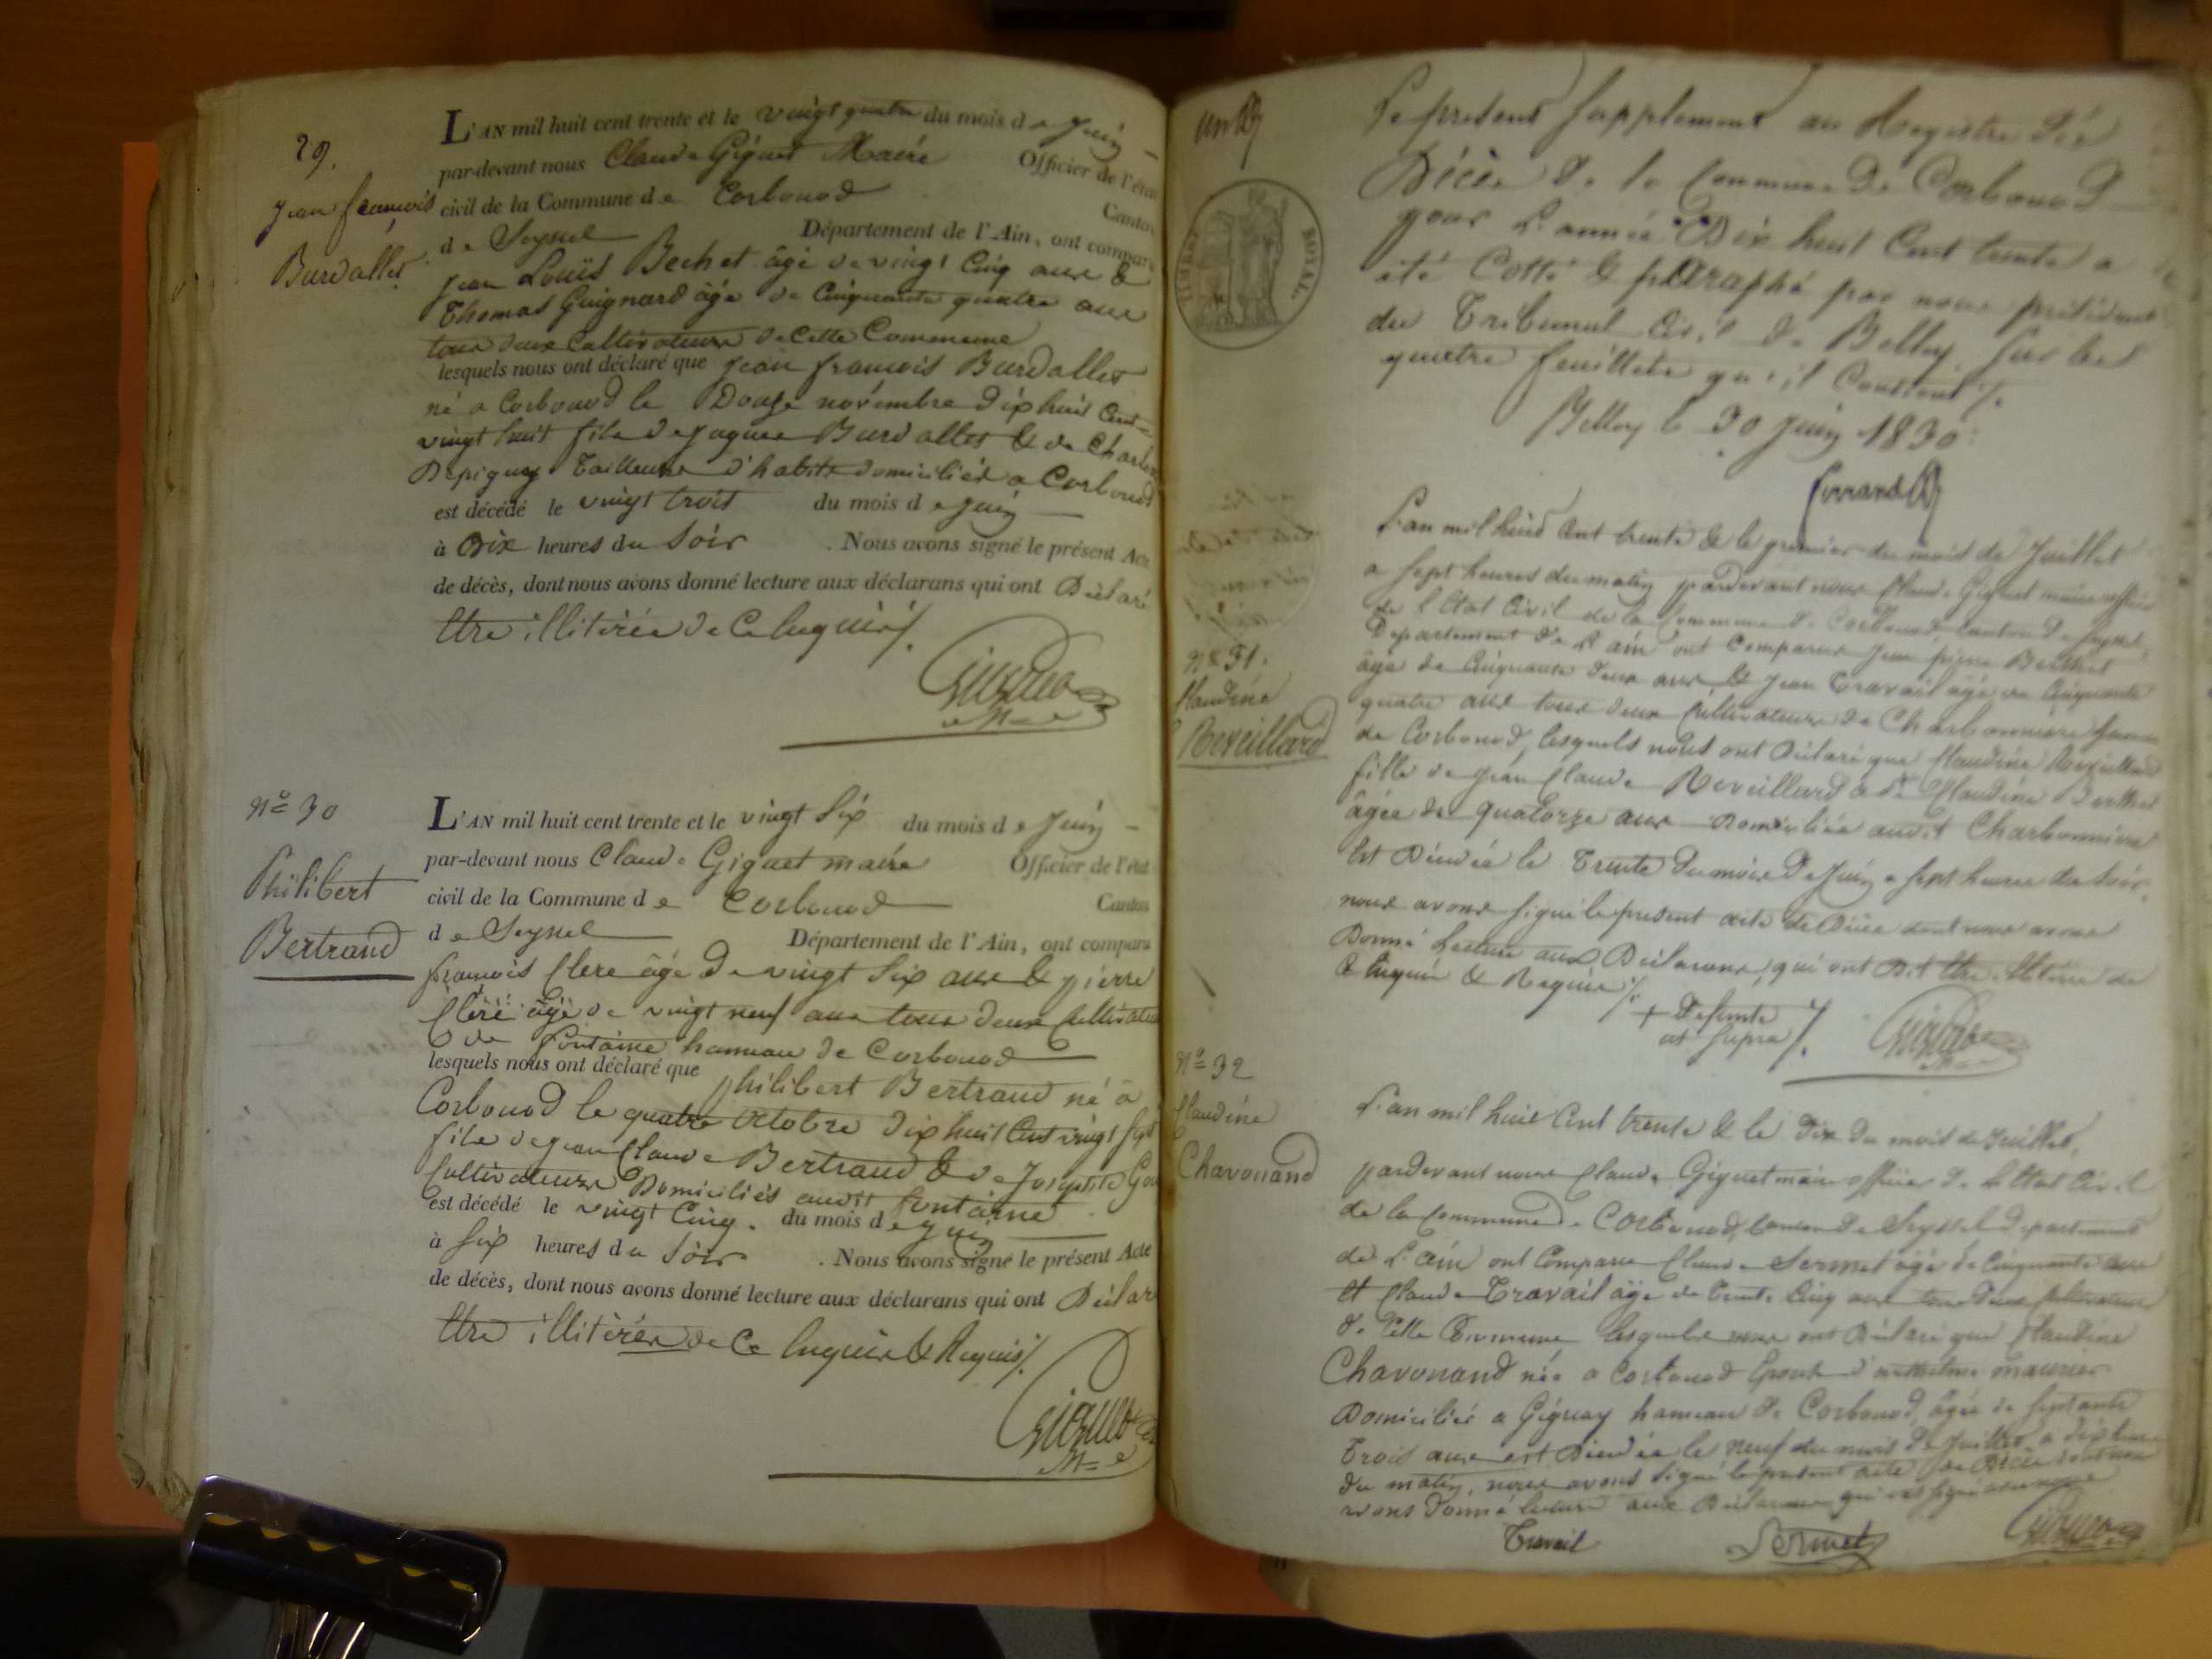 29.
Jean françois
Burdallet
L'AN mil huit cent trente et le vingt quatre du mois de Juin
par-devant nous Claude Giguet Maire Officier de l'état
civil de la Commune de Corbonod Canton
de Seyssel Département de l'Ain, ont comparu
Jean Louïs Bechet âgé de vingt Cinq ans &
Thomas Guignard âgé de Cinquante quatre ans
tous deux Cultivateurs de Cette Commune
lesquels nous ont déclaré que Jean francois Burdallet
né a Corbonod le Douze novembre dix huit Cent
vingt huit fils de Jaques Burdallet & de Charlo
Depigny Tailleurs d'habits domiciliés a Corbonod
est décédé le vingt trois du mois de Juin
à Dix heures du Soir . Nous avons signé le présent Acte
de décès, dont nous avons donné lecture aux déclarans qui ont Déclaré
Etre illitérés de Ce Enquis ./.
Giguet
M=e
N° 30
Philibert
Bertrand
L'AN mil huit cent trente et le vingt Six du mois de Juin
par-devant nous Claude Giguet maire Officier de l'état
civil de la Commune de Corbonod Canton
de Seyssel Département de l'Ain, ont comparu
francois Clere âgé De vingt Six ans & pierre
Clere âgé de vingt neuf ans tous deux Cultivateu
de fontaine hameau de Corbonod
lesquels nous ont déclaré que Philibert Bertrand né à
Corbonod le quatre octobre dix huit Cent vingt Sept
fils de Jean Claude Bertrand & de Josephte
Cultivateurs Domiciliés audit fontaine
est décédé le vingt Cinq du mois de Juin
à Six heures du Soir . Nous avons signé le présent Acte
de décès, dont nous avons donné lecture aux déclarans qui ont Déclar
Etre illitérés de Ce Enquis & Requis ./.
Giguet
M=e
un
TIMBRE ROYAL.
Le présent Supplement au Registre Des
Décès de la Commune De Corbonod
pour L'année Dix huit Cent trente a
été Cotté & paraphé par nous président
du Tribunal Civil de Belley Sur les
quatre feuillets qu'il Contient ./.
Belley le 30 Juin 1830
N° 31.
Claudine
Reveillard
L'an mil huit Cent trente & le premier du mois de Juillet
a Sept heures du matin pardevant nous Claude Giguet maire officier
de l'Etat Civil de la Commune de Corbonod, Canton De Seyssel,
Departement De L'ain ont Comparus Jean pierre Berthet
âgé de Cinquante Deux ans & Jean Travail âgé de Cinquante
quatre ans tous deux Cultivateurs de Charbonniere hameau
de Corbonod, lesquels nous ont Déclaré que Claudine Reveillard
fille de Jean Claude Reveillard & de Claudine Berthet
âgée de quatorze ans Domiciliée audit Charbonniere
Est Décédée le Trente du mois De Juin a Sept heures du Soir,
nous avons Signé le présent acte de Décès dont nous avons
Donné Lecture aux Déclarans, qui ont Dit Etre illitérés de
Ce Enquis & Requis ./.
+ Defunte
ut Supra ./.
Giguet
M=e
N° 32
Claudine
Chavonand
L'an mil huit Cent trente & le Dix Du mois de Juillet,
pardevant nous Claude Giguet maire officier De l'Etat Civil
de la Commune De Corbonod, Canton De Seyssel Departement
de L'ain ont Comparu Claude Sermet âgé de Cinquante ans
Et Claude Travail âgé de Trente Cinq ans tous Deux Cultivateurs
De Cette Commune, lesquels nous ont Déclaré que Claudine
Chavonand née a Corbonod Epouse d'anthelme
Domiciliée a Gignay hameau De Corbonod, âgée de Septante
Trois ans est Décédée le neuf du mois De Juillet a dix heures
Du matin, nous avons Signé le présent acte De Décès dont nous
avons Donné lecture aux Déclarans qui ont Signé avec nous
Travail Sermet Giguet